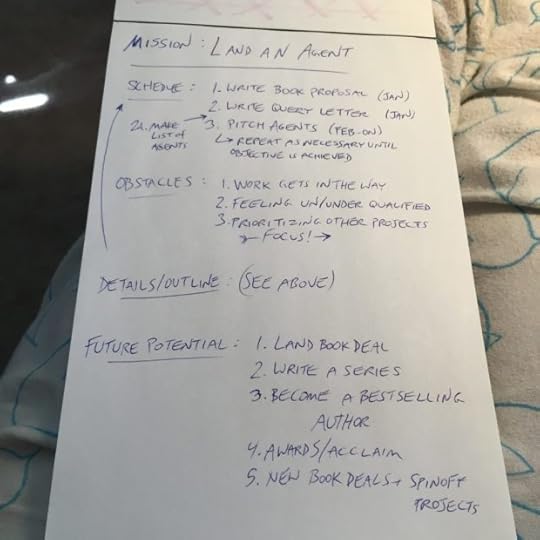 MISSION: LAND AN AGENT
SCHEDULE: 1. WRITE BOOK PROPOSAL (JAN)
2. WRITE QUERY LETTER (JAN)
2a. MAKE LIST OF AGENTS
3. PITCH AGENTS (FEB-ON)
↳ REPEAT AS NECESSARY UNTIL
OBJECTIVE IS ACHIEVED
OBSTACLES: 1. WORK GETS IN THE WAY
2. FEELING UN/UNDER QUALIFIED
3. PRIORITIZING OTHER PROJECTS
FOCUS! →
DETAILS/OUTLINE: (SEE ABOVE)
FUTURE POTENTIAL: 1. LAND BOOK DEAL
2. WRITE A SERIES
3. BECOME A BESTSELLING
AUTHOR
4. AWARDS/ACCLAIM
5. NEW BOOK DEALS + SPINOFF
PROJECTS